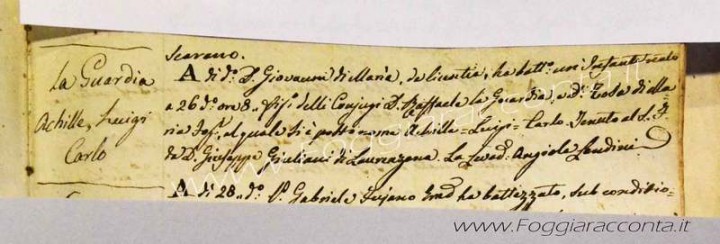 La Guardia
Achille, Luigi
Carlo
Scarano.
A dì d.º D. Giovanni di Maria, de licentia, ha batt.º un' Infante nato
a 26 d.º ore 8. figº delli Conjugi D. Raffaele la Guardia, e Dª Rosa di
al quale si è posto nome Achille = Luigi = Carlo. Tenuto al S. F.
da D. Giuseppe Giuliani di Laurenzana. La Levad. Angiola Landini.
A dì 28. d.º ha battezzato, sub conditio-
www.Foggiaracconta.it